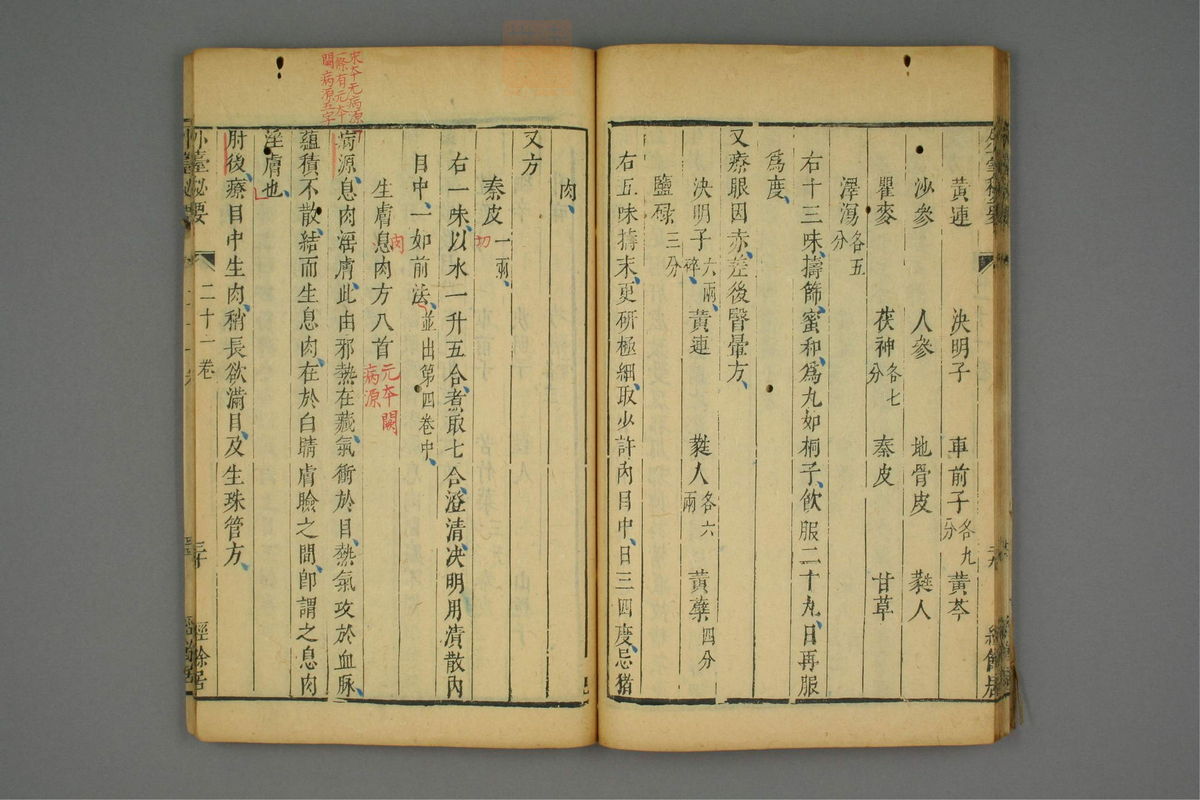 黃連 決明子 車前子各九分 黃芩
沙參 人參 地骨皮 蕤人
瞿麥 茯神各七分 秦皮 甘草
澤瀉各五分
右十三味擣篩蜜和為丸如桐子飲服二十丸日再服
為度
又療眼因赤差後瞖暈方
決明子六兩碎 黃連 蕤人各六兩 黃蘗四分
鹽碌三分
右五味擣末更研極細取少許內目中日三四度忌猪
肉
又方
秦皮一兩切
右一味以水一升五合煮取七合澄清決明用漬散內
目中一如前法並出第四卷中
生膚息肉方八首
元本闕
病源
宋本无病源
一條有元本
闕病源五字
病源息肉淫膚此由邪熱在藏氣衝於目熱氣攻於血脉
蘊積不散結而生息肉在於白睛膚瞼之間卽謂之息肉
淫膚也
肘後療目中生肉稍長欲滿目及生珠管方
外臺秘要 二十一卷 三十 經餘居